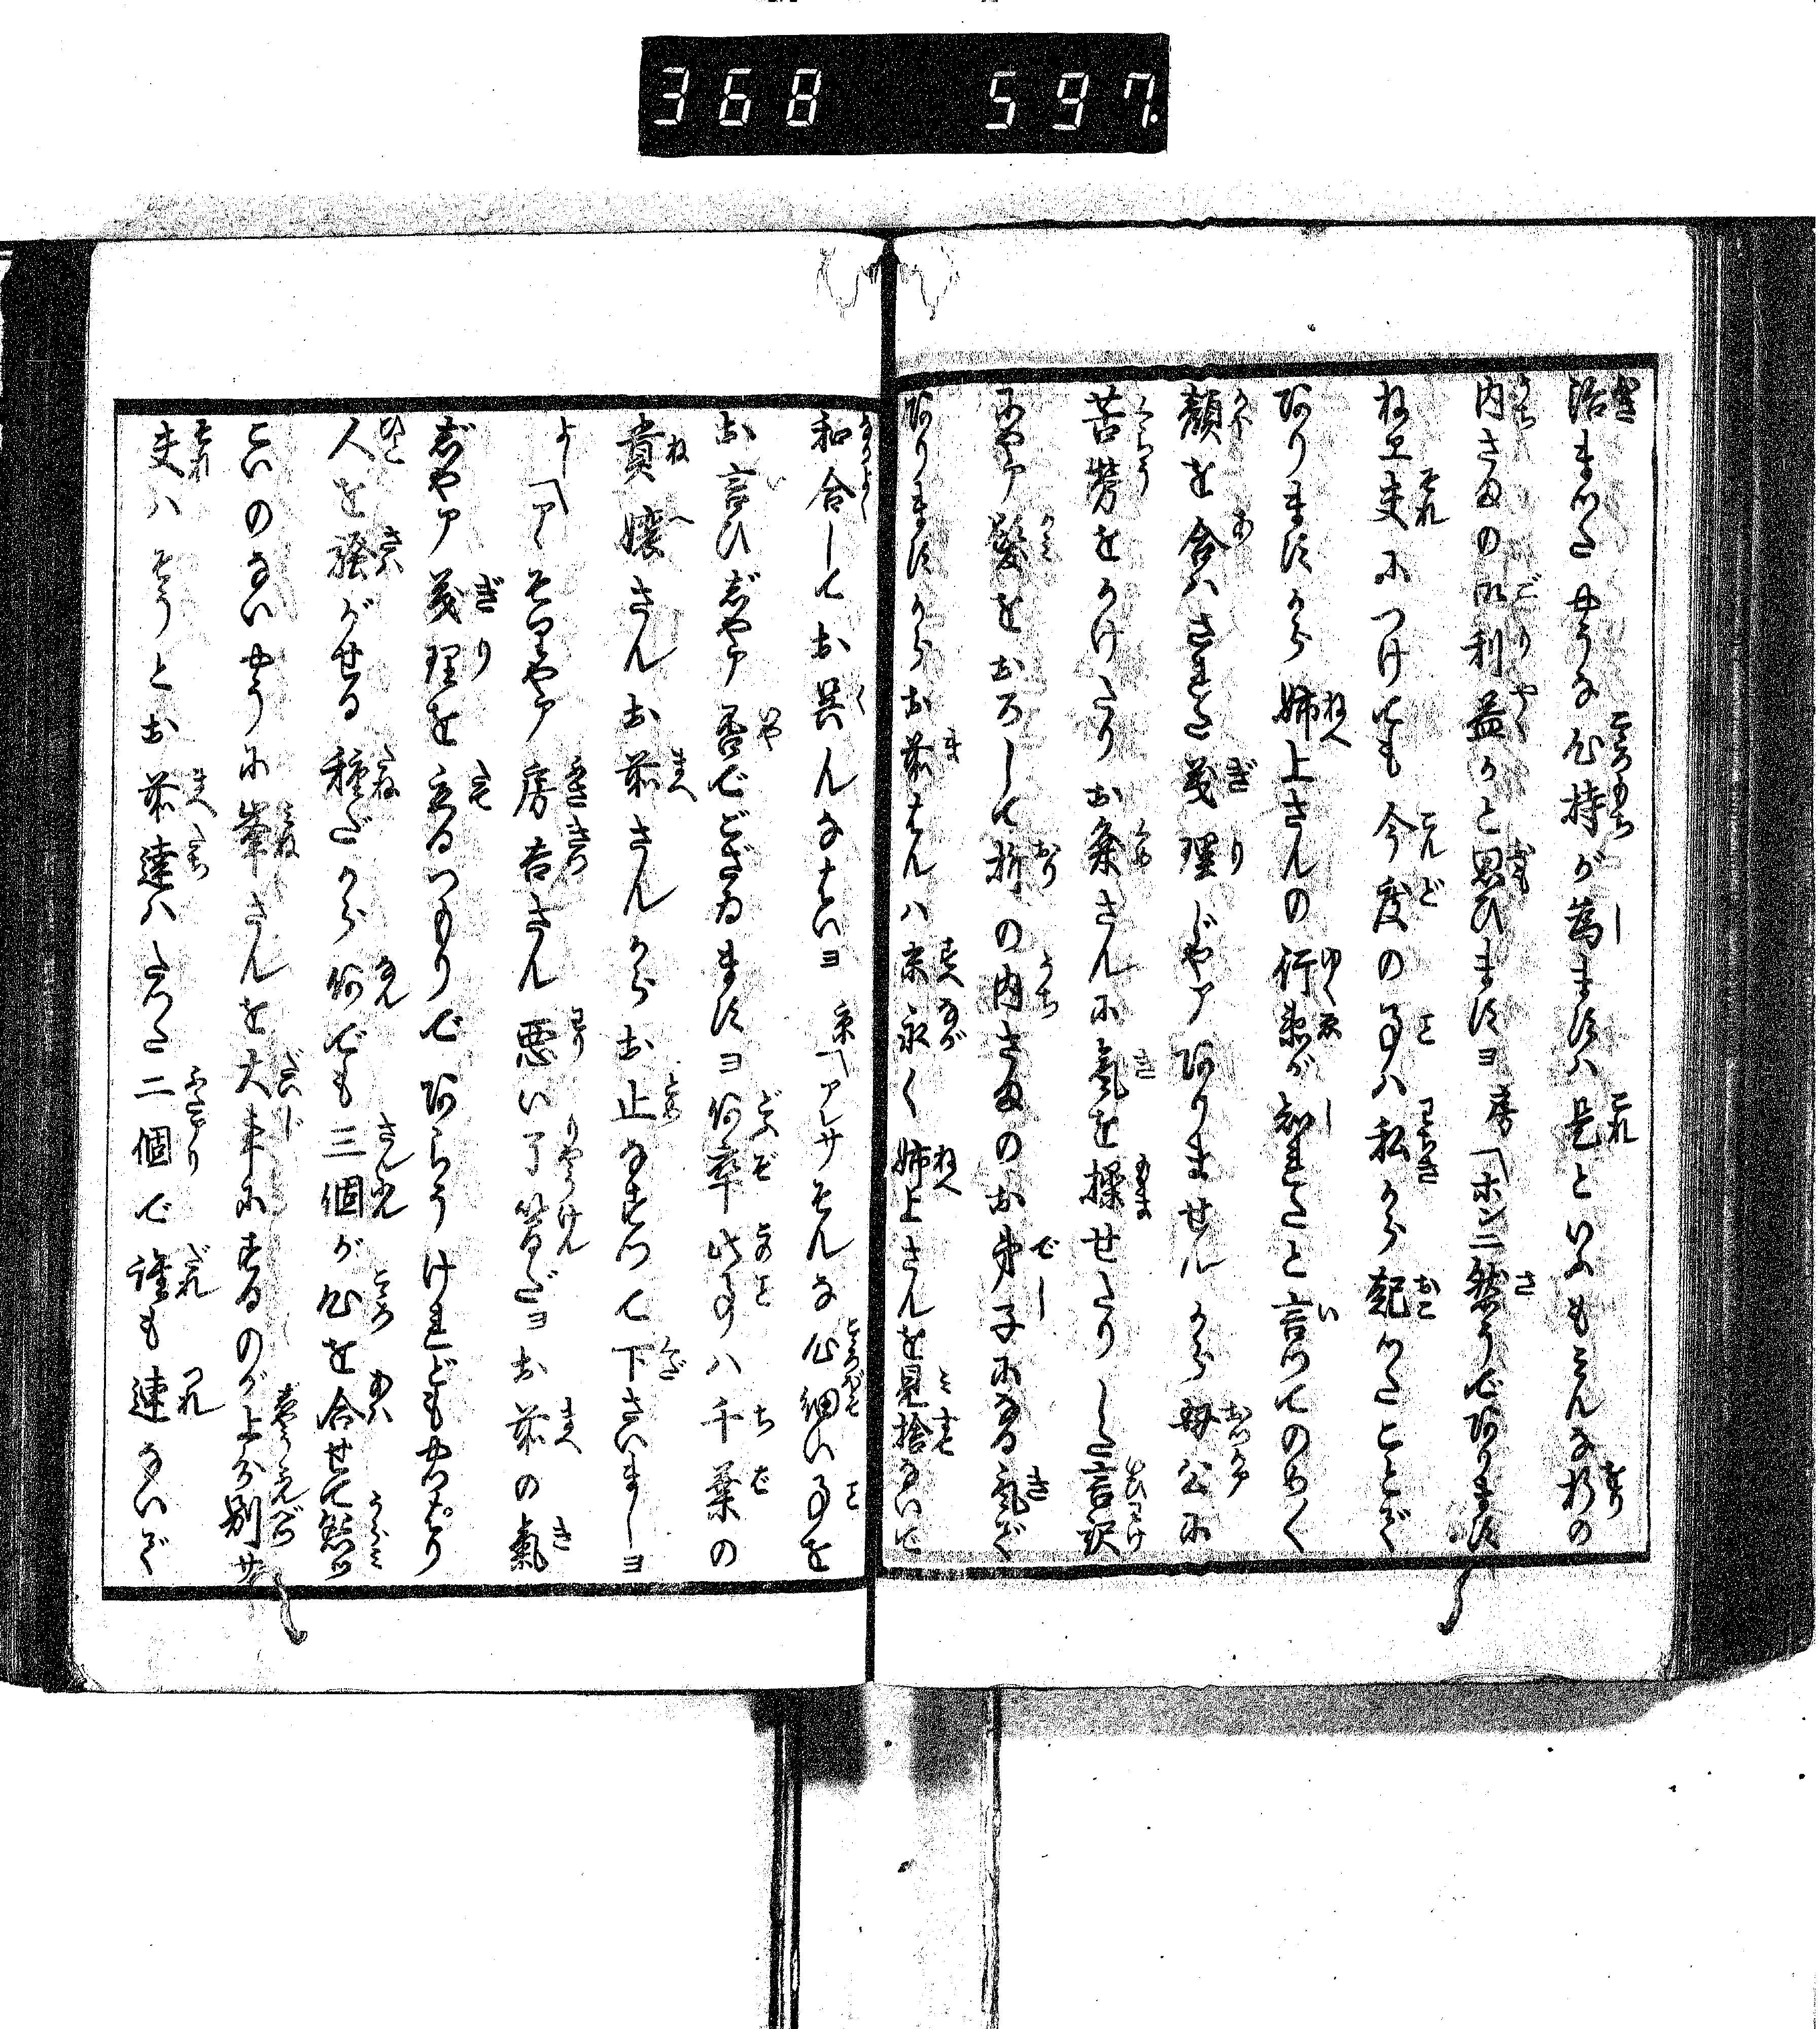 368 597.
治まつたやうな心持が為ますハ是といふもみんな祈の
内さまの御利益かと思ひますヨ 房「ホンニ然うであります
ねエ夫につけても今度の事ハ私から起つたことで
ありますから姉上さんの行衛が知れたと言つてのめ〳〵
顔を合ハされた義理じやアありませんから母公に
苦労をかけたりお粂さんに気を揉せたりした言訳
にやア髪をおろして祈の内さまのお弟子になる気で
ありますからお前さんハ末永く姉上さんを見捨ないで
和合してお呉んなさいヨ 粂「アレサそんな心細い事を
お言ひじやア否でございますヨ何卒此事ハ千葉の
貴嬢さんお前さんからお止なすつて下さいましヨ
よし「アヽそりやア房吉さん悪い了簡だヨお前の気
じやア義理を立るつもりであらうけれどもやつぱり
人を騒がせる種だから何でも三個が心を合せて怨ツ
こいのないやうに峯さんを大事にするのが上分別サ
夫ハそうとお前達ハたつた二個で誰も連ないで